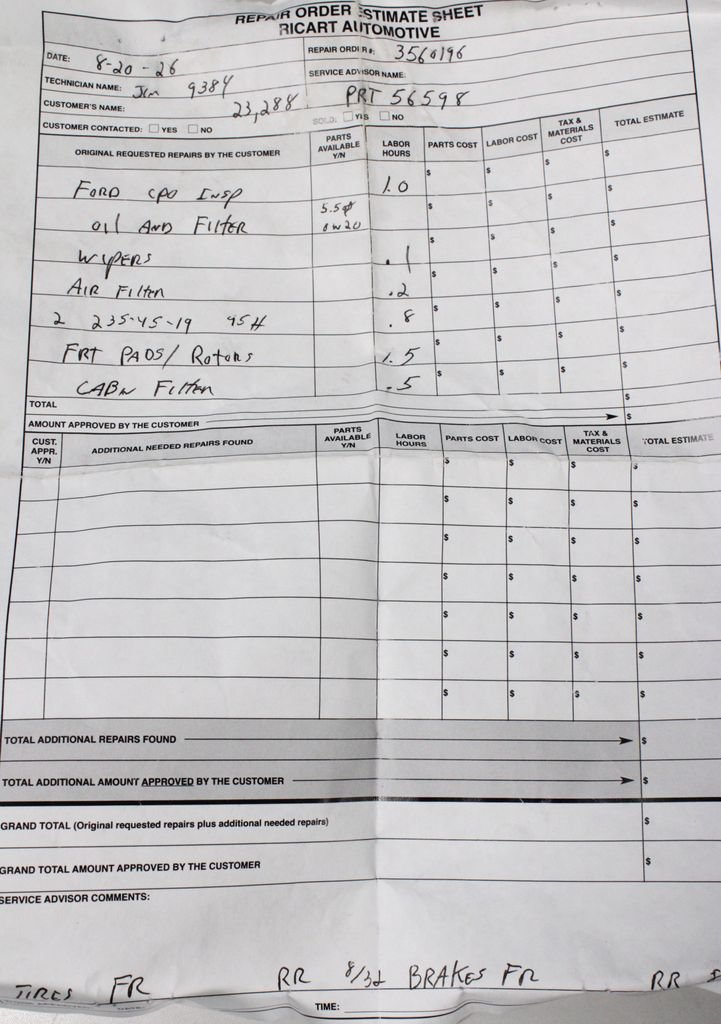 REPAIR ORDER ESTIMATE SHEET
RICART AUTOMOTIVE
DATE: 8-20-26
REPAIR ORDER #: 3560196
TECHNICIAN NAME: Jim 9384
SERVICE ADVISOR NAME:
CUSTOMER'S NAME: 23,288
PRT 56598
CUSTOMER CONTACTED: YES NO
SOLD: YES NO
ORIGINAL REQUESTED REPAIRS BY THE CUSTOMER PARTS AVAILABLE Y/N LABOR HOURS PARTS COST LABOR COST TAX & MATERIALS COST TOTAL ESTIMATE
FORD CPO INSP 1.0 $ $ $ $
OIL AND FILTER 5.5qt 0w20 $ $ $ $
WYPERS .1 $ $ $ $
AIR FILTER .2 $ $ $ $
2 235-45-19 95H .8 $ $ $ $
FRT PADS/ Rotors 1.5 $ $ $ $
CABN FILTER .5 $ $ $ $
TOTAL $
AMOUNT APPROVED BY THE CUSTOMER $
CUST. APPR. Y/N ADDITIONAL NEEDED REPAIRS FOUND PARTS AVAILABLE Y/N LABOR HOURS PARTS COST LABOR COST TAX & MATERIALS COST TOTAL ESTIMATE
$ $ $ $
$ $ $ $
$ $ $ $
$ $ $ $
$ $ $ $
$ $ $ $
$ $ $ $
TOTAL ADDITIONAL REPAIRS FOUND $
TOTAL ADDITIONAL AMOUNT APPROVED BY THE CUSTOMER $
GRAND TOTAL (Original requested repairs plus additional needed repairs) $
GRAND TOTAL AMOUNT APPROVED BY THE CUSTOMER $
SERVICE ADVISOR COMMENTS:
TIRES FR RR 8/32 BRAKES FR RR
TIME: